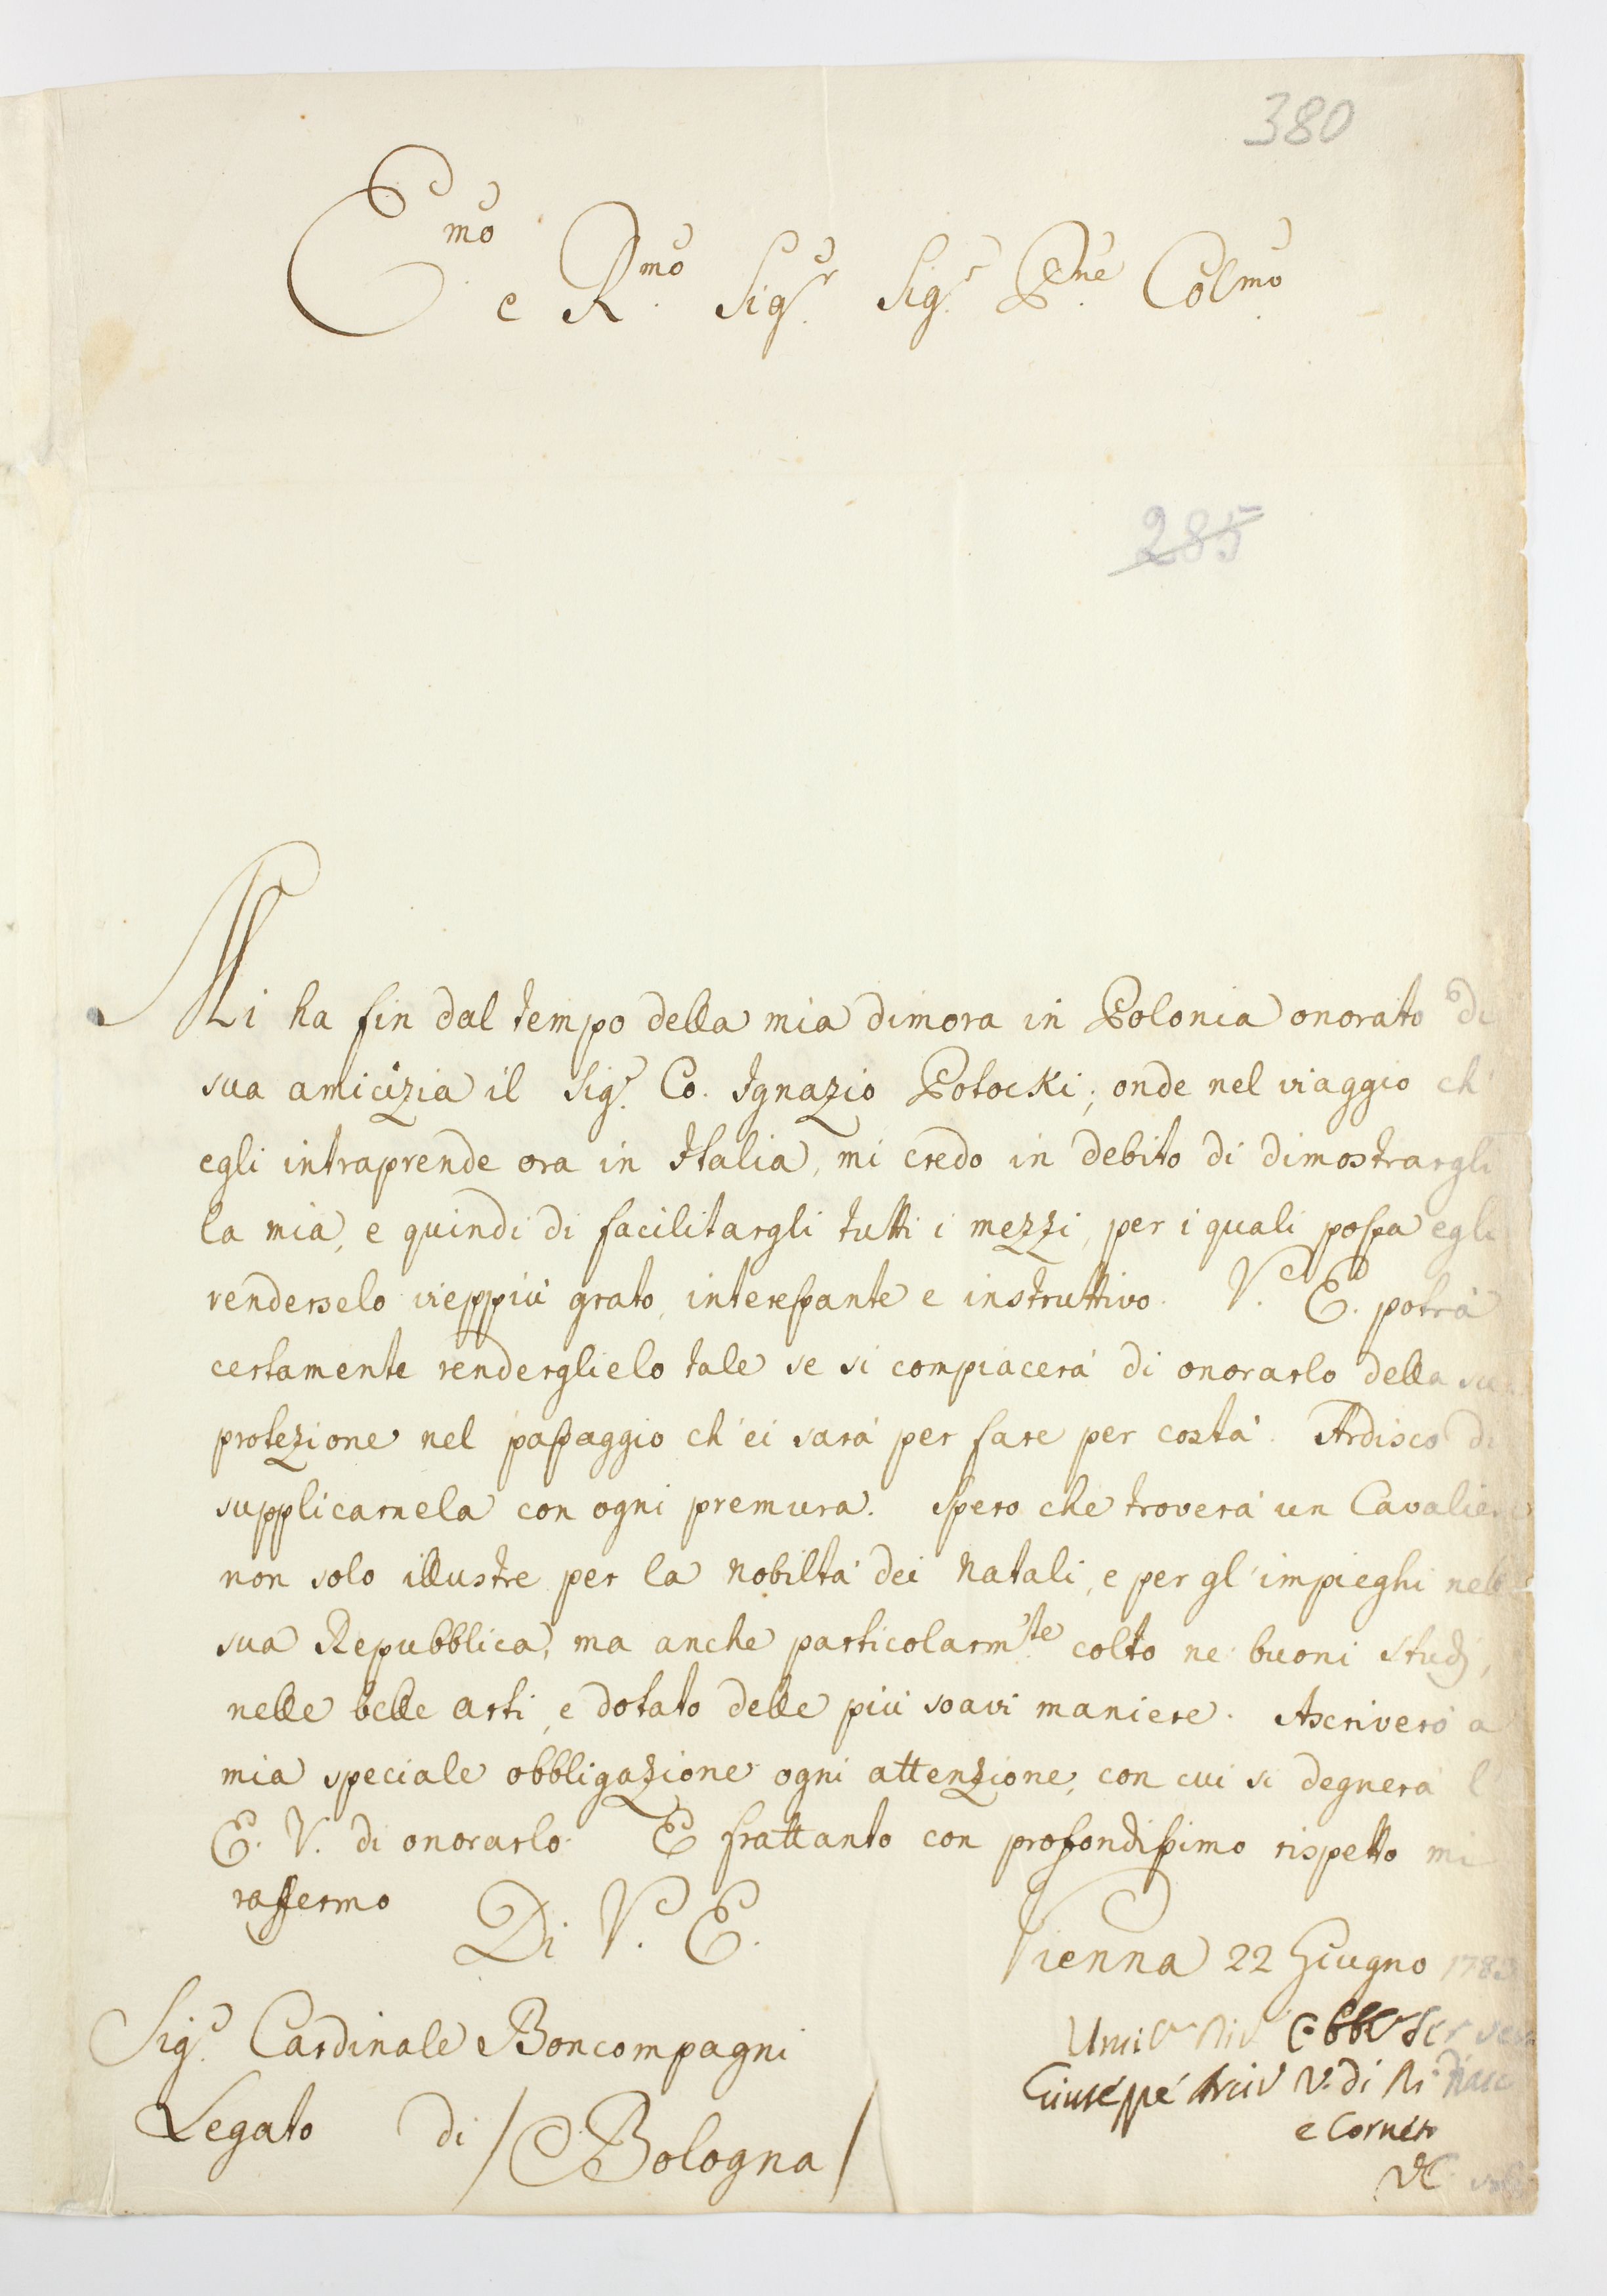 380
E.mo e R.mo Sig.r Sig.r P.ne Col.mo
285
Mi ha fin dal tempo della mia dimora in Polonia onorato di
sua amicizia il Sig.r Co. Ignazio Potocki; onde nel viaggio ch'
egli intraprende ora in Italia, mi credo in debito di dimostrargli
la mia, e quindi di facilitargli tutti i mezzi, per i quali possa egli
renderselo vieppiù grato, interessante e instruttivo. V. E. potrà
certamente renderglielo tale se si compiacerà di onorarlo della sua
protezione nel passaggio ch'ei sarà per fare per costà. Ardisco di
supplicarnela con ogni premura. Spero che troverà un Cavaliere
non solo illustre per la nobiltà dei natali, e per gl'impieghi nella
sua Repubblica, ma anche particolarm.te colto ne' buoni studj,
nelle belle arti, e dotato delle più soavi maniere. Ascriverò a
mia speciale obbligazione ogni attenzione, con cui si degnerà l'
E. V. di onorarlo. E frattanto con profondissimo rispetto mi
raffermo
Di V. E.
Vienna 22 Giugno 1783
Sig.r Cardinale Boncompagni
Legato di /Bologna/
Giuseppe Arciv V. di
e Corneto